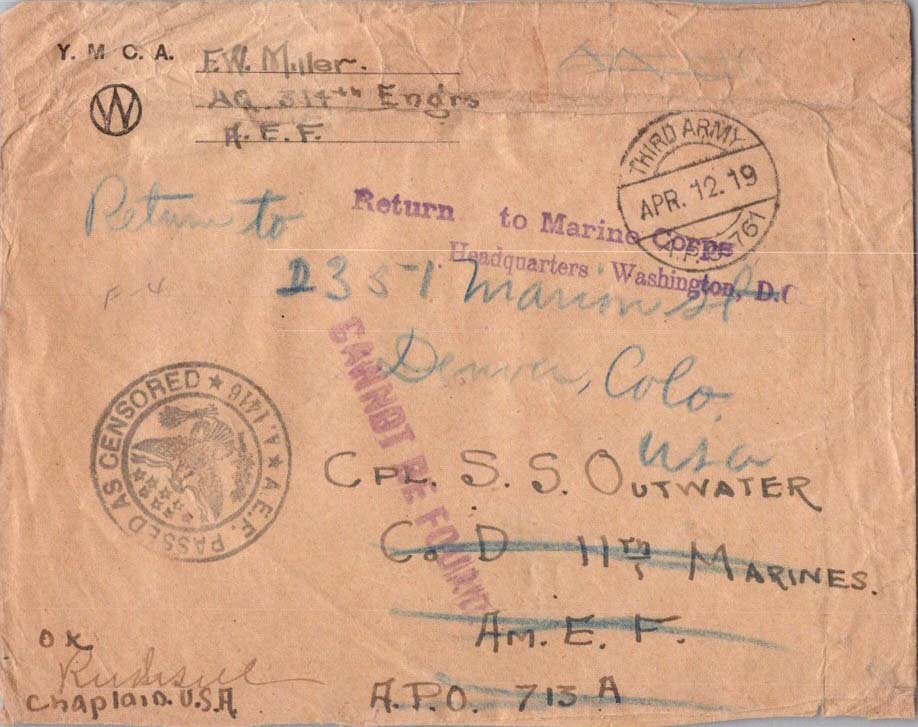 Y. M. C. A.
F.W. Miller.
HQ 314th Engrs
A. E. F.
W
THIRD ARMY
APR. 12. 19
A.P.O. 761
Return to
Return to Marine Corps
Headquarters Washington, D.C
2351 Marion St
Denver, Colo.
USA
CANNOT BE FOUND
A.E.F. PASSED AS CENSORED ★ A.1416 ★
CPL. S. S. OUTWATER
Co D 11TH MARINES.
AM. E. F.
A.P.O. 713 A
OK
Chaplain. U.S.A